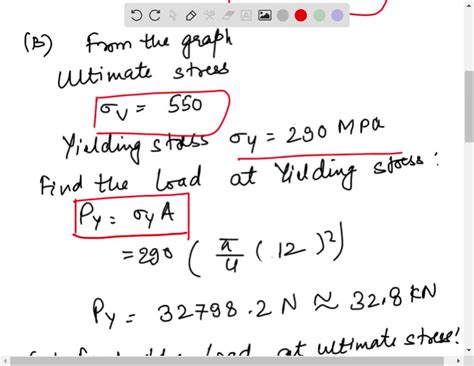 (B) From the graph
Ultimate stress
σᵤ = 550
Yielding stress σy = 290 MPa
Find the Load at Yielding stress:
Py = σy A
= 290 ( π/4 ( 12 )²)
Py = 32798.2 N ≈ 32.8 kN
the Load at ultimate stress!